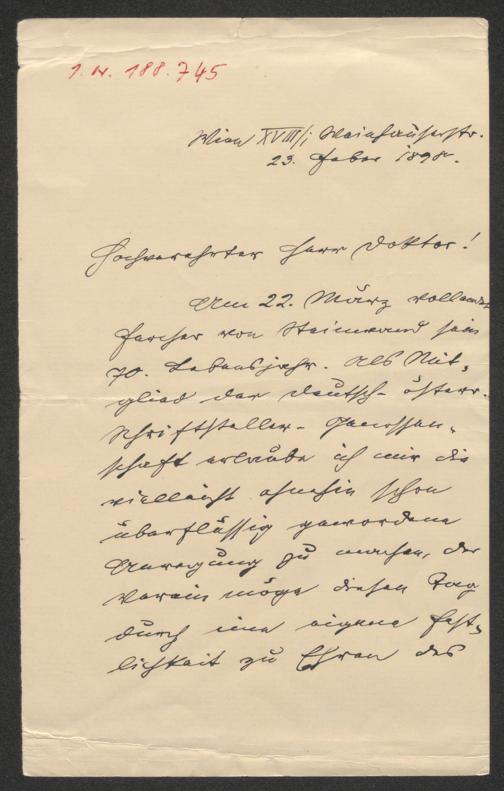 I. N. 188.745
Wien XVIII/1 Weinhauserstr.
23. Feber 1898.
Hochverehrter Herr Doktor!
Am 22. März vollendet
Fercher von Steinwand sein
70. Lebensjahr. Als Mit-
glied der deutsch-österr.
Schriftsteller-Genossen-
schaft erlaube ich mir die
vielleicht ohnehin schon
überflüssig gewordene
Anregung zu machen, der
Verein möge diesen Tag
durch eine eigene Fest-
lichkeit zu Ehren des